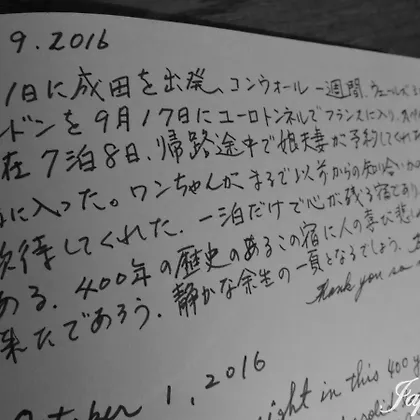 9.2016
1日に成田を出発、コンウォール一週間、ウェールズ
ンドンを9月17日にユーロトンネルでフランスに入り、
在7泊8日、帰路途中で娘夫妻が予約してくれ
に入った。ワンちゃんがまるで以前からの知り合いか
待してくれた。一泊だけで心が残る宿であり
ある。400年の歴史のあるこの宿に人の喜び悲
来たであろう。静かな余生の一頁となるでしょう。
Thank you so
October 1, 2016
night in this 400 y